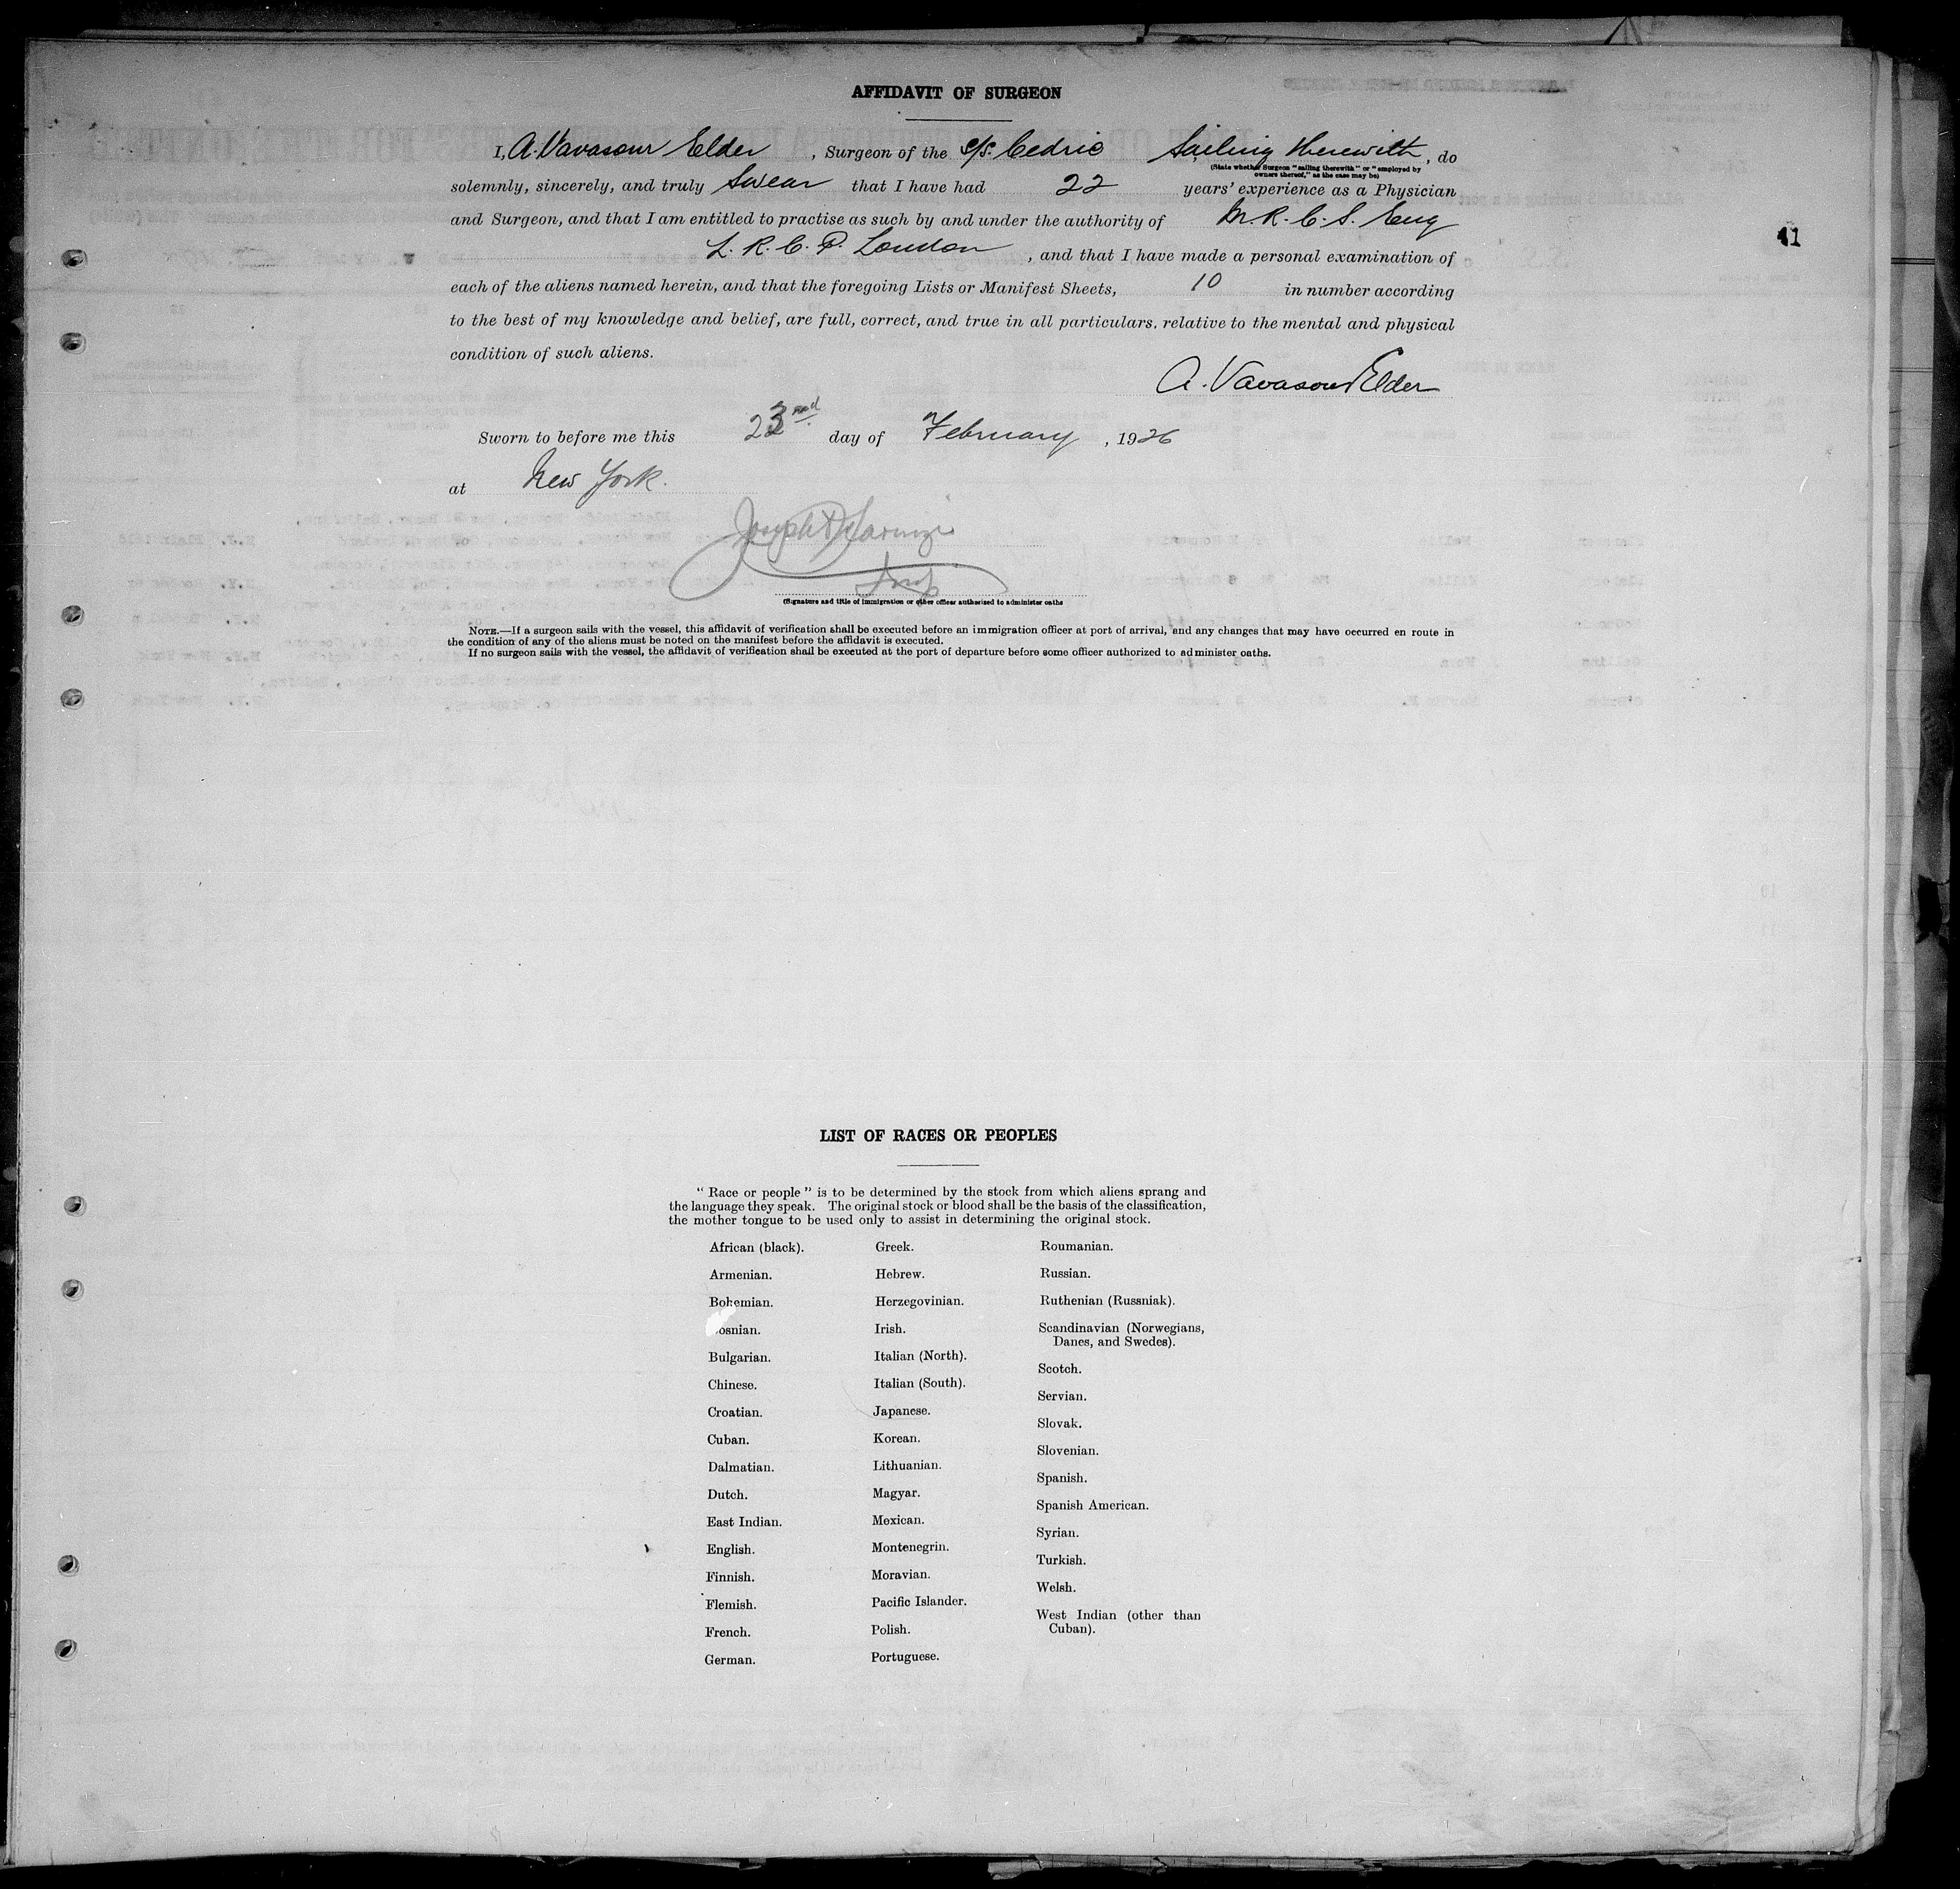 AFFIDAVIT OF SURGEON
I, A. Vavasour Elder, Surgeon of the S/S. Cedric Sailing therewith, do
(State whether Surgeon "sailing therewith" or "employed by
owners thereof," as the case may be)
solemnly, sincerely, and truly swear that I have had 22 years' experience as a Physician
and Surgeon, and that I am entitled to practise as such by and under the authority of M.R.C.S. Eng
L.R.C.P. London, and that I have made a personal examination of
41
each of the aliens named herein, and that the foregoing Lists or Manifest Sheets, 10 in number according
to the best of my knowledge and belief, are full, correct, and true in all particulars, relative to the mental and physical
condition of such aliens.
A. Vavasour Elder
Sworn to before me this 23rd day of February, 1926
at New York.
Joseph
Insp
(Signature and title of immigration or other officer authorized to administer oaths
NOTE.—If a surgeon sails with the vessel, this affidavit of verification shall be executed before an immigration officer at port of arrival, and any changes that may have occurred en route in
the condition of any of the aliens must be noted on the manifest before the affidavit is executed.
If no surgeon sails with the vessel, the affidavit of verification shall be executed at the port of departure before some officer authorized to administer oaths.
LIST OF RACES OR PEOPLES
"Race or people" is to be determined by the stock from which aliens sprang and
the language they speak. The original stock or blood shall be the basis of the classification,
the mother tongue to be used only to assist in determining the original stock.
African (black).
Armenian.
Bohemian.
osnian.
Bulgarian.
Chinese.
Croatian.
Cuban.
Dalmatian.
Dutch.
East Indian.
English.
Finnish.
Flemish.
French.
German.
Greek.
Hebrew.
Herzegovinian.
Irish.
Italian (North).
Italian (South).
Japanese.
Korean.
Lithuanian.
Magyar.
Mexican.
Montenegrin.
Moravian.
Pacific Islander.
Polish.
Portuguese.
Roumanian.
Russian.
Ruthenian (Russniak).
Scandinavian (Norwegians,
Danes, and Swedes).
Scotch.
Servian.
Slovak.
Slovenian.
Spanish.
Spanish American.
Syrian.
Turkish.
Welsh.
West Indian (other than
Cuban).